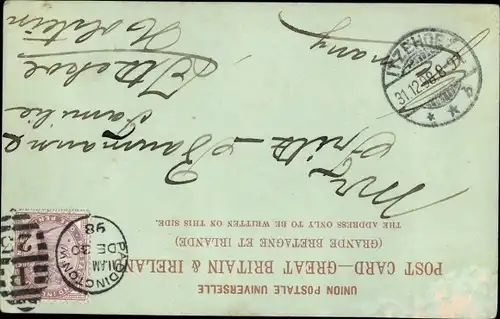 UNION POSTALE UNIVERSELLE
POST CARD—GREAT BRITAIN & IRELAND
(GRANDE BRETAGNE ET IRLANDE)
THE ADDRESS ONLY TO BE WRITTEN ON THIS SIDE.
Fritz Baumann
Familie
Itzehoe
Holstein
ITZEHOE
31.12.98.8-9V.
* * b
PADDINGTON.W
DE 30
98